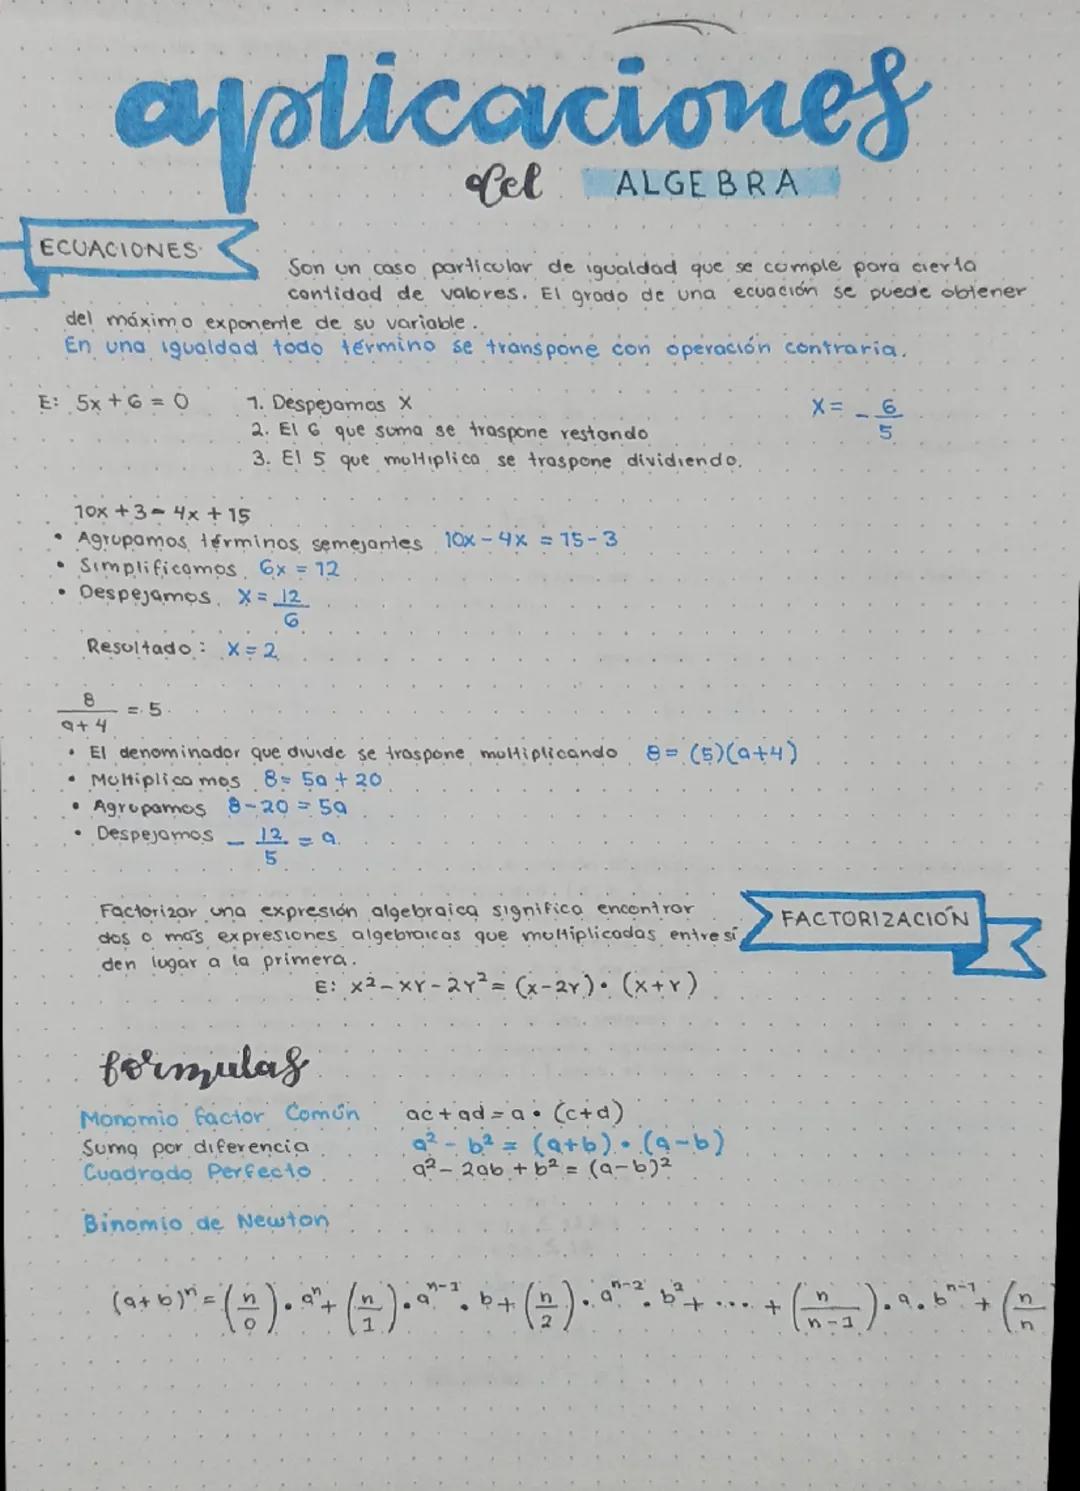 aplicaciones
del ALGEBRA
ECUACIONES
Son un caso particular de igualdad que se cumple para cierta
cantidad de valores. El grado de una ecuación se puede obtener
del máximo exponente de su variable.
En una igualdad todo término se transpone con operación contraria.
E: 5x + 6 = 0 1. Despejamos X X = - 6/5
2. El 6 que suma se traspone restando
3. El 5 que multiplica se traspone dividiendo.
10x + 3 = 4x + 15
• Agrupamos términos semejantes 10x - 4x = 15 - 3
• Simplificamos 6x = 12
• Despejamos X = 12/6
Resultado: X = 2
8/(a+4) = 5
• El denominador que divide se traspone multiplicando 8 = (5)(a+4)
• Multiplicamos 8 = 5a + 20
• Agrupamos 8 - 20 = 5a
• Despejamos - 12/5 = a
Factorizar una expresión algebraica significa encontrar
dos o más expresiones algebraicas que multiplicadas entre sí
den lugar a la primera.
FACTORIZACIÓN
E: x² - xy - 2y² = (x-2y) • (x+y)
formulas
Monomio factor Común ac + ad = a • (c+d)
Suma por diferencia a² - b² = (a+b) • (a-b)
Cuadrado Perfecto a² - 2ab + b² = (a-b)²
Binomio de Newton
(a+b)ⁿ = (n/0) • aⁿ + (n/1) • aⁿ⁻¹ • b + (n/2) • aⁿ⁻² • b² + .... + (n/n-1) • a • bⁿ⁻¹ + (n/n